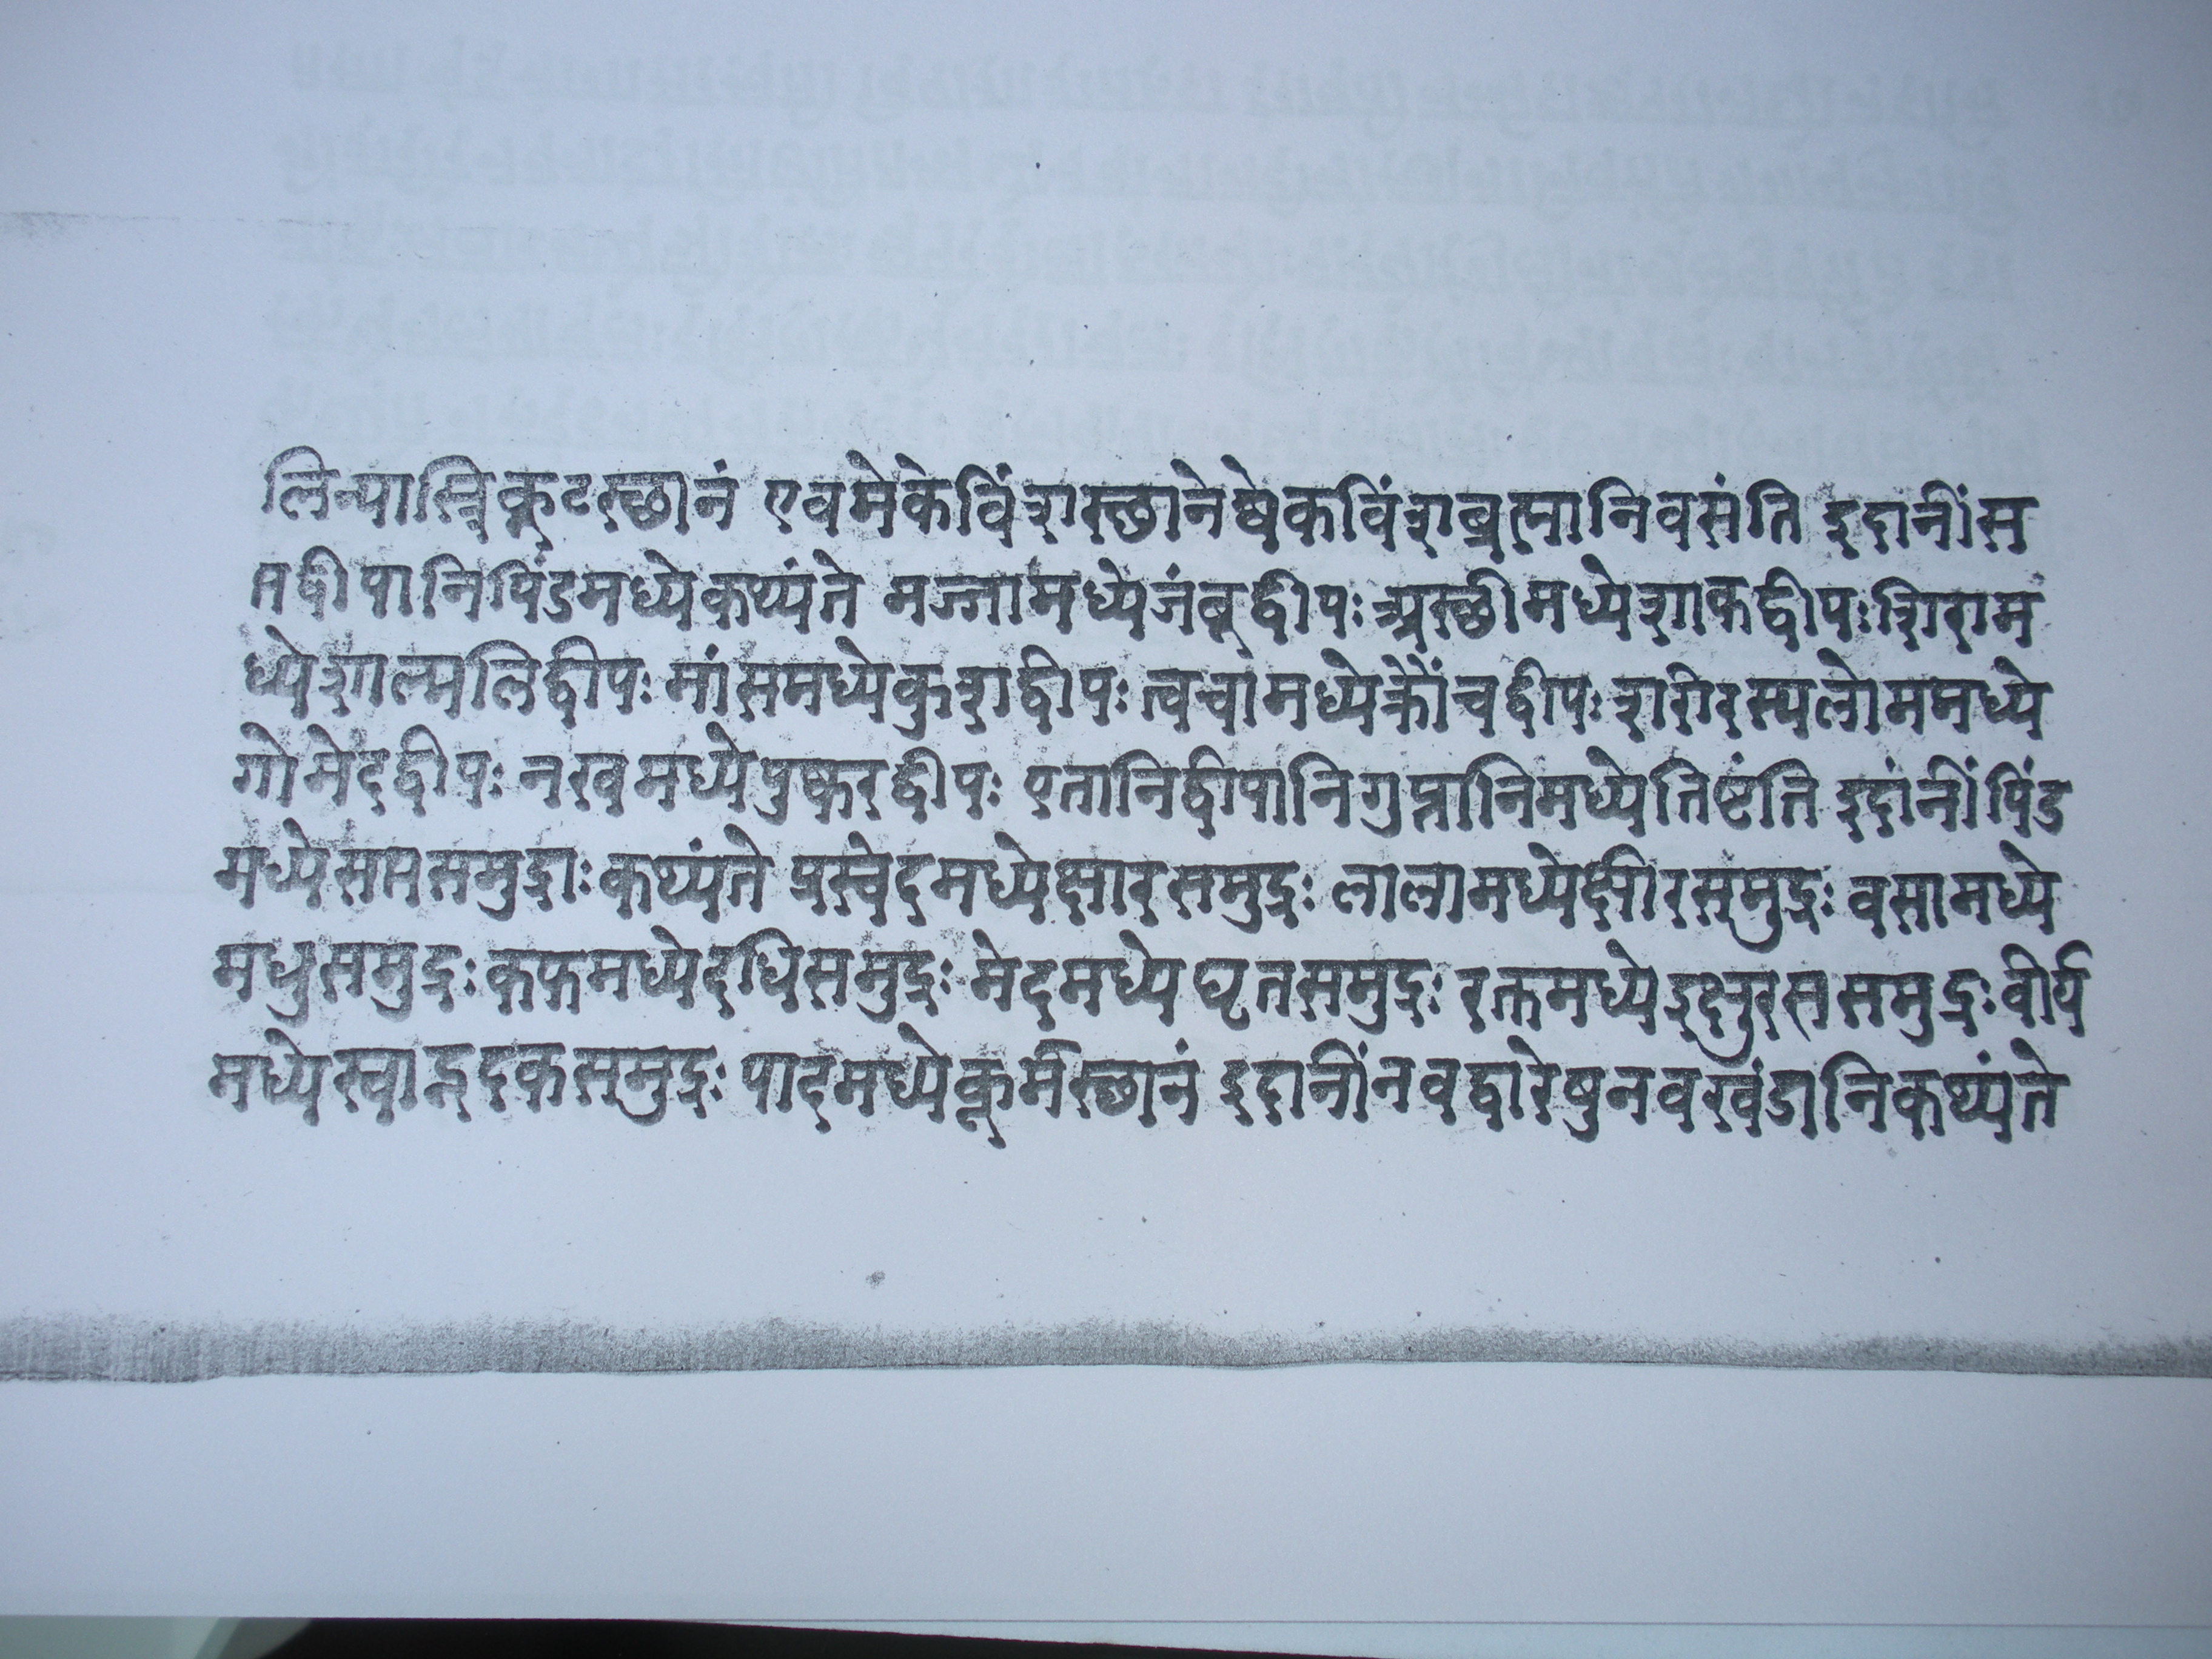 लिन्यास्त्रिकूटस्छानं एवमेकेविंशस्छानेष्वेकविंशब्रह्मानिवसंति इदानींस
प्तद्वीपानिपिंडमध्येकथ्यंते मज्जामध्येजंबूद्वीपः अस्छीमध्येशाकद्वीपःशिराम
ध्येशाल्मलिद्वीपः मांसमध्येकुशद्वीपः त्वचामध्येक्रौंचद्वीपः शरीरस्यलोममध्ये
गोमेदद्वीपः नखमध्येपुष्करद्वीपः एतानिद्वीपानिगुप्तानिमध्येतिष्टंति इदांनींपिंड
मध्येसप्तसमुद्राःकथ्यंते प्रस्वेदमध्येक्षारसमुद्रः लालामध्येक्षीरसमुद्रः वसामध्ये
मधुसमुद्रः कफमध्येदधिसमुद्रः मेदमध्येघृतसमुद्रः रक्तमध्येइक्षुरससमुद्रःवीर्य
मध्येस्वादूदकसमुद्रः पादमध्येकूर्मस्छानं इदानींनवद्वारेषुनवखंडानिकथ्यंते